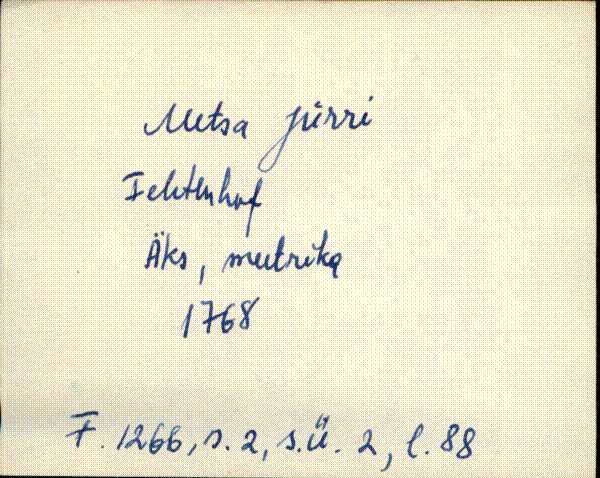 Metsa Jürri
Fehtenhof
Äks, meetrika
1768
F. 1266, n. 2, s.ü. 2, l. 88